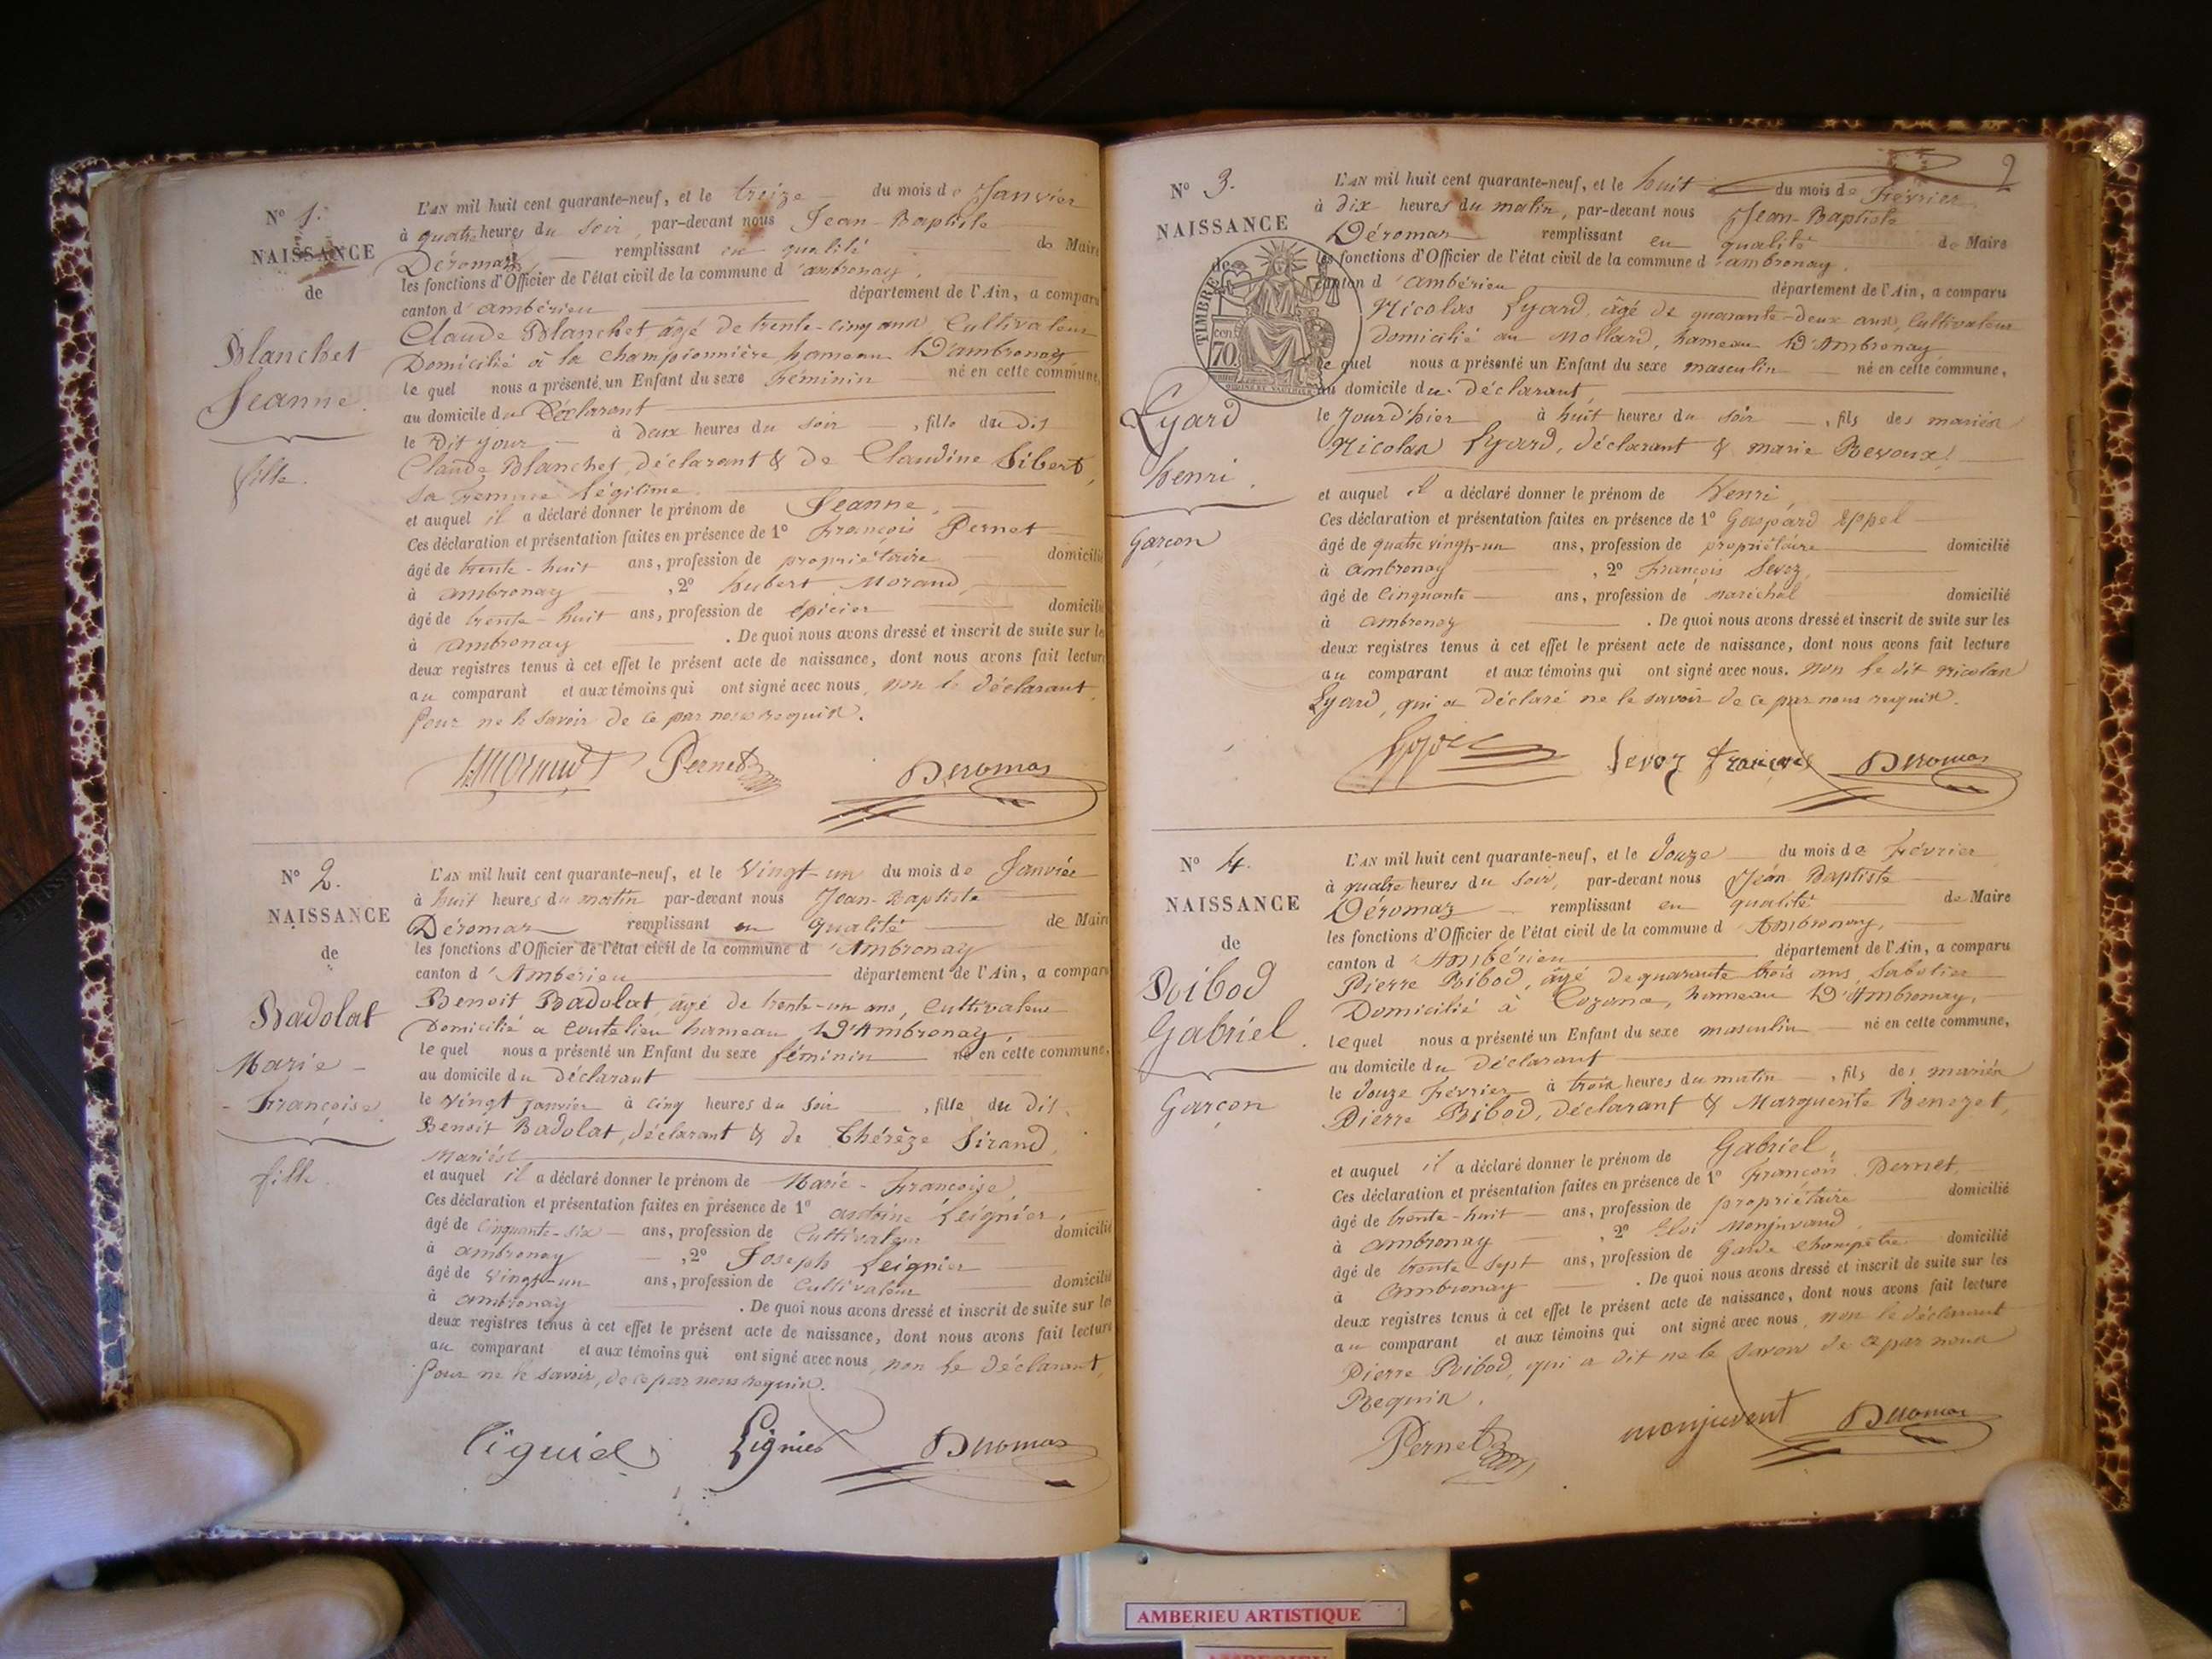 N° 1.
NAISSANCE
de
Blanchet
Jeanne.
fille.
L'AN mil huit cent quarante-neuf, et le treize du mois de Janvier
à quatre heures du soir, par-devant nous Jean-Baptiste
Déromas remplissant en qualité de Maire
les fonctions d'Officier de l'état civil de la commune d'ambronay,
canton d'ambérieu département de l'Ain, a comparu
Claude Blanchet, âgé de trente-cinq ans, Cultivateur
Domicilié à la Championnière hameau D'ambronay
le quel nous a présenté un Enfant du sexe féminin né en cette commune,
au domicile du Déclarant
le Dit jour à deux heures du soir, fille du dit
Claude Blanchet, déclarant & de Claudine Sibert,
sa femme légitime.
et auquel il a déclaré donner le prénom de Jeanne,
Ces déclaration et présentation faites en présence de 1° François Pernet
âgé de trente-huit ans, profession de propriétaire domicilié
à ambronay, 2° hubert Morand,
âgé de trente-huit ans, profession de épicier domicilié
à ambronay. De quoi nous avons dressé et inscrit de suite sur les
deux registres tenus à cet effet le présent acte de naissance, dont nous avons fait lecture
au comparant et aux témoins qui ont signé avec nous, non le déclarant,
pour ne le savoir de ce par nous requis.
Pernet Deromas
N° 2.
NAISSANCE
de
Badolat
Marie-
-Françoise
fille.
L'AN mil huit cent quarante-neuf, et le vingt-un du mois de Janvier
à huit heures du matin par-devant nous Jean-Baptiste
Déromas remplissant en qualité de Maire
les fonctions d'Officier de l'état civil de la commune d'Ambronay
canton d'Ambérieu département de l'Ain, a comparu
Benoit Badolat, âgé de trente-un ans, cultivateur
Domicilié a coutelieu hameau D'Ambronay,
le quel nous a présenté un Enfant du sexe féminin né en cette commune,
au domicile du déclarant
le vingt janvier à cinq heures du soir, fille du dit
Benoit Badolat, déclarant & de Thérèze Sirand,
Mariés
et auquel il a déclaré donner le prénom de Marie-Françoise,
Ces déclaration et présentation faites en présence de 1° antoine Leignier,
âgé de cinquante-six ans, profession de Cultivateur domicilié
à ambronay, 2° Joseph Leignier
âgé de vingt-un ans, profession de Cultivateur domicilié
à ambronay. De quoi nous avons dressé et inscrit de suite sur les
deux registres tenus à cet effet le présent acte de naissance, dont nous avons fait lecture
au comparant et aux témoins qui ont signé avec nous, non le déclarant,
pour ne le savoir, de ce par nous requis.
Lignier Deromas
2
N° 3.
NAISSANCE
de
TIMBRE
cent
70.
Lyard
henri.
Garçon
L'AN mil huit cent quarante-neuf, et le huit du mois de Février
à dix heures du matin, par-devant nous Jean-Baptiste
Déromas remplissant en qualité de Maire
les fonctions d'Officier de l'état civil de la commune d'ambronay,
canton d'ambérieu département de l'Ain, a comparu
Nicolas Lyard, âgé de quarante-deux ans, Cultivateur
domicilié au Mollard, hameau D'Ambronay
le quel nous a présenté un Enfant du sexe masculin né en cette commune,
au domicile du déclarant,
le jour d'hier à huit heures du soir, fils des mariés
Nicolas Lyard, déclarant & marie Revoux,
et auquel il a déclaré donner le prénom de Henri,
Ces déclaration et présentation faites en présence de 1° Gaspard Eppel
âgé de quatre vingt-un ans, profession de propriétaire domicilié
à ambronay, 2° François Sevoz,
âgé de Cinquante ans, profession de maréchal domicilié
à ambronay. De quoi nous avons dressé et inscrit de suite sur les
deux registres tenus à cet effet le présent acte de naissance, dont nous avons fait lecture
au comparant et aux témoins qui ont signé avec nous. non le dit nicolas
Lyard, qui a déclaré ne le savoir de ce par nous requis.
Sevoz François Deromas
N° 4.
NAISSANCE
de
Ribod
Gabriel.
Garçon
L'AN mil huit cent quarante-neuf, et le douze du mois de Février
à quatre heures du soir, par-devant nous Jean Baptiste
Déromas remplissant en qualité de Maire
les fonctions d'Officier de l'état civil de la commune d'Ambronay,
canton d'Ambérieu département de l'Ain, a comparu
Pierre Ribod, âgé de quarante trois ans, Sabotier
Domicilié à Cozance, hameau D'Ambronay,
lequel nous a présenté un Enfant du sexe masculin né en cette commune,
au domicile du déclarant
le douze Février à trois heures du matin, fils des mariés
Pierre Ribod, déclarant & Marguerite Benozet,
et auquel il a déclaré donner le prénom de Gabriel,
Ces déclaration et présentation faites en présence de 1° François Pernet,
âgé de trente-huit ans, profession de propriétaire domicilié
à ambronay, 2° Eloi Monjuvand,
âgé de trente-sept ans, profession de Garde Champêtre domicilié
à Ambronay. De quoi nous avons dressé et inscrit de suite sur les
deux registres tenus à cet effet le présent acte de naissance, dont nous avons fait lecture
au comparant et aux témoins qui ont signé avec nous, non le déclarant
Pierre Ribod, qui a dit ne le savoir de ce par nous
Requis.
Pernet monjuvent Deromas
AMBERIEU ARTISTIQUE